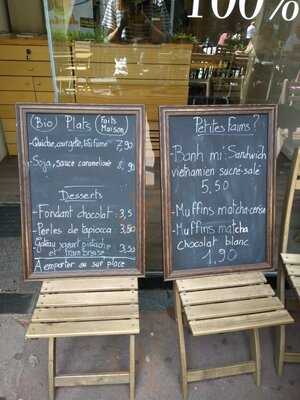 100%
(Bio) Plats (Faits Maison)
-Quiche, courgette, tofu fumé 7,90
-Soja, sauce caramélisée 8,90
Desserts
-Fondant chocolat : 3,5
-Perles de tapiocca : 3,50
-Gateau yaourt pistache et framboise : 3,50
A emporter ou sur place
Petites faims ?
-Banh mi : Sandwich
vietnamien sucré-salé
5,50
-Muffins matcha-cerise
-Muffins matcha
chocolat blanc
1,90